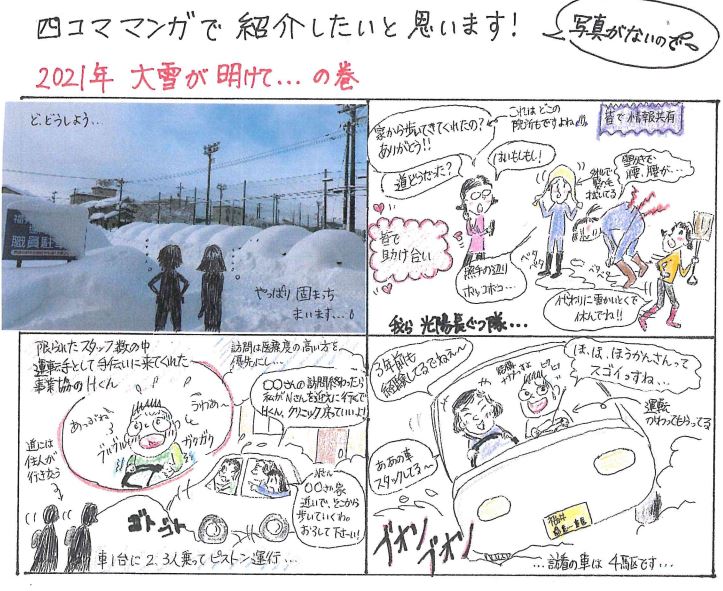 四コママンガで紹介したいと思います!
写真がないので〜
2021年 大雪が明けて…の巻
ど、どうしよう…
やっぱり固まっち
まいます…
職員駐
家から歩いてきてくれたの?
ありがとう!!
これはどこの
院所もですよね
皆で情報共有
道どうだった?
はいもしもし!
雪かきで
腰、腰が…
皆で
助け合い
ペタ
ペタ
ペタペタ
照手の辺り
ボッコボコ…
代わりに雪かいとくで
休んでね!!
我ら光陽長ぐつ隊…
限られたスタッフ数の中
運転手として手伝いに来てくれた
事業協のHくん
あっぶね〜
うわあ〜
ブルブル
ガタガタ
訪問は医療度の高い方を
優先にし…
〇〇さんの訪問終わったら
私がNさんをお迎えに行くで
Hくん、クリニック戻っていいよ!
道には
住人が
行きかう
ゴトゴト
〇〇さん家
近いで、そこから
歩いていくわ。
おろして下さーい!
車1台に2、3人乗ってピストン運行…
3年前も
経験してるでねぇ〜
ほ、ほ、ほうかんさんって
スゴイっすね…
運転
かわってもらってる
ああの車
スタックしてる〜
ブオン
ブオン
福井
…訪看の車は4駆です…